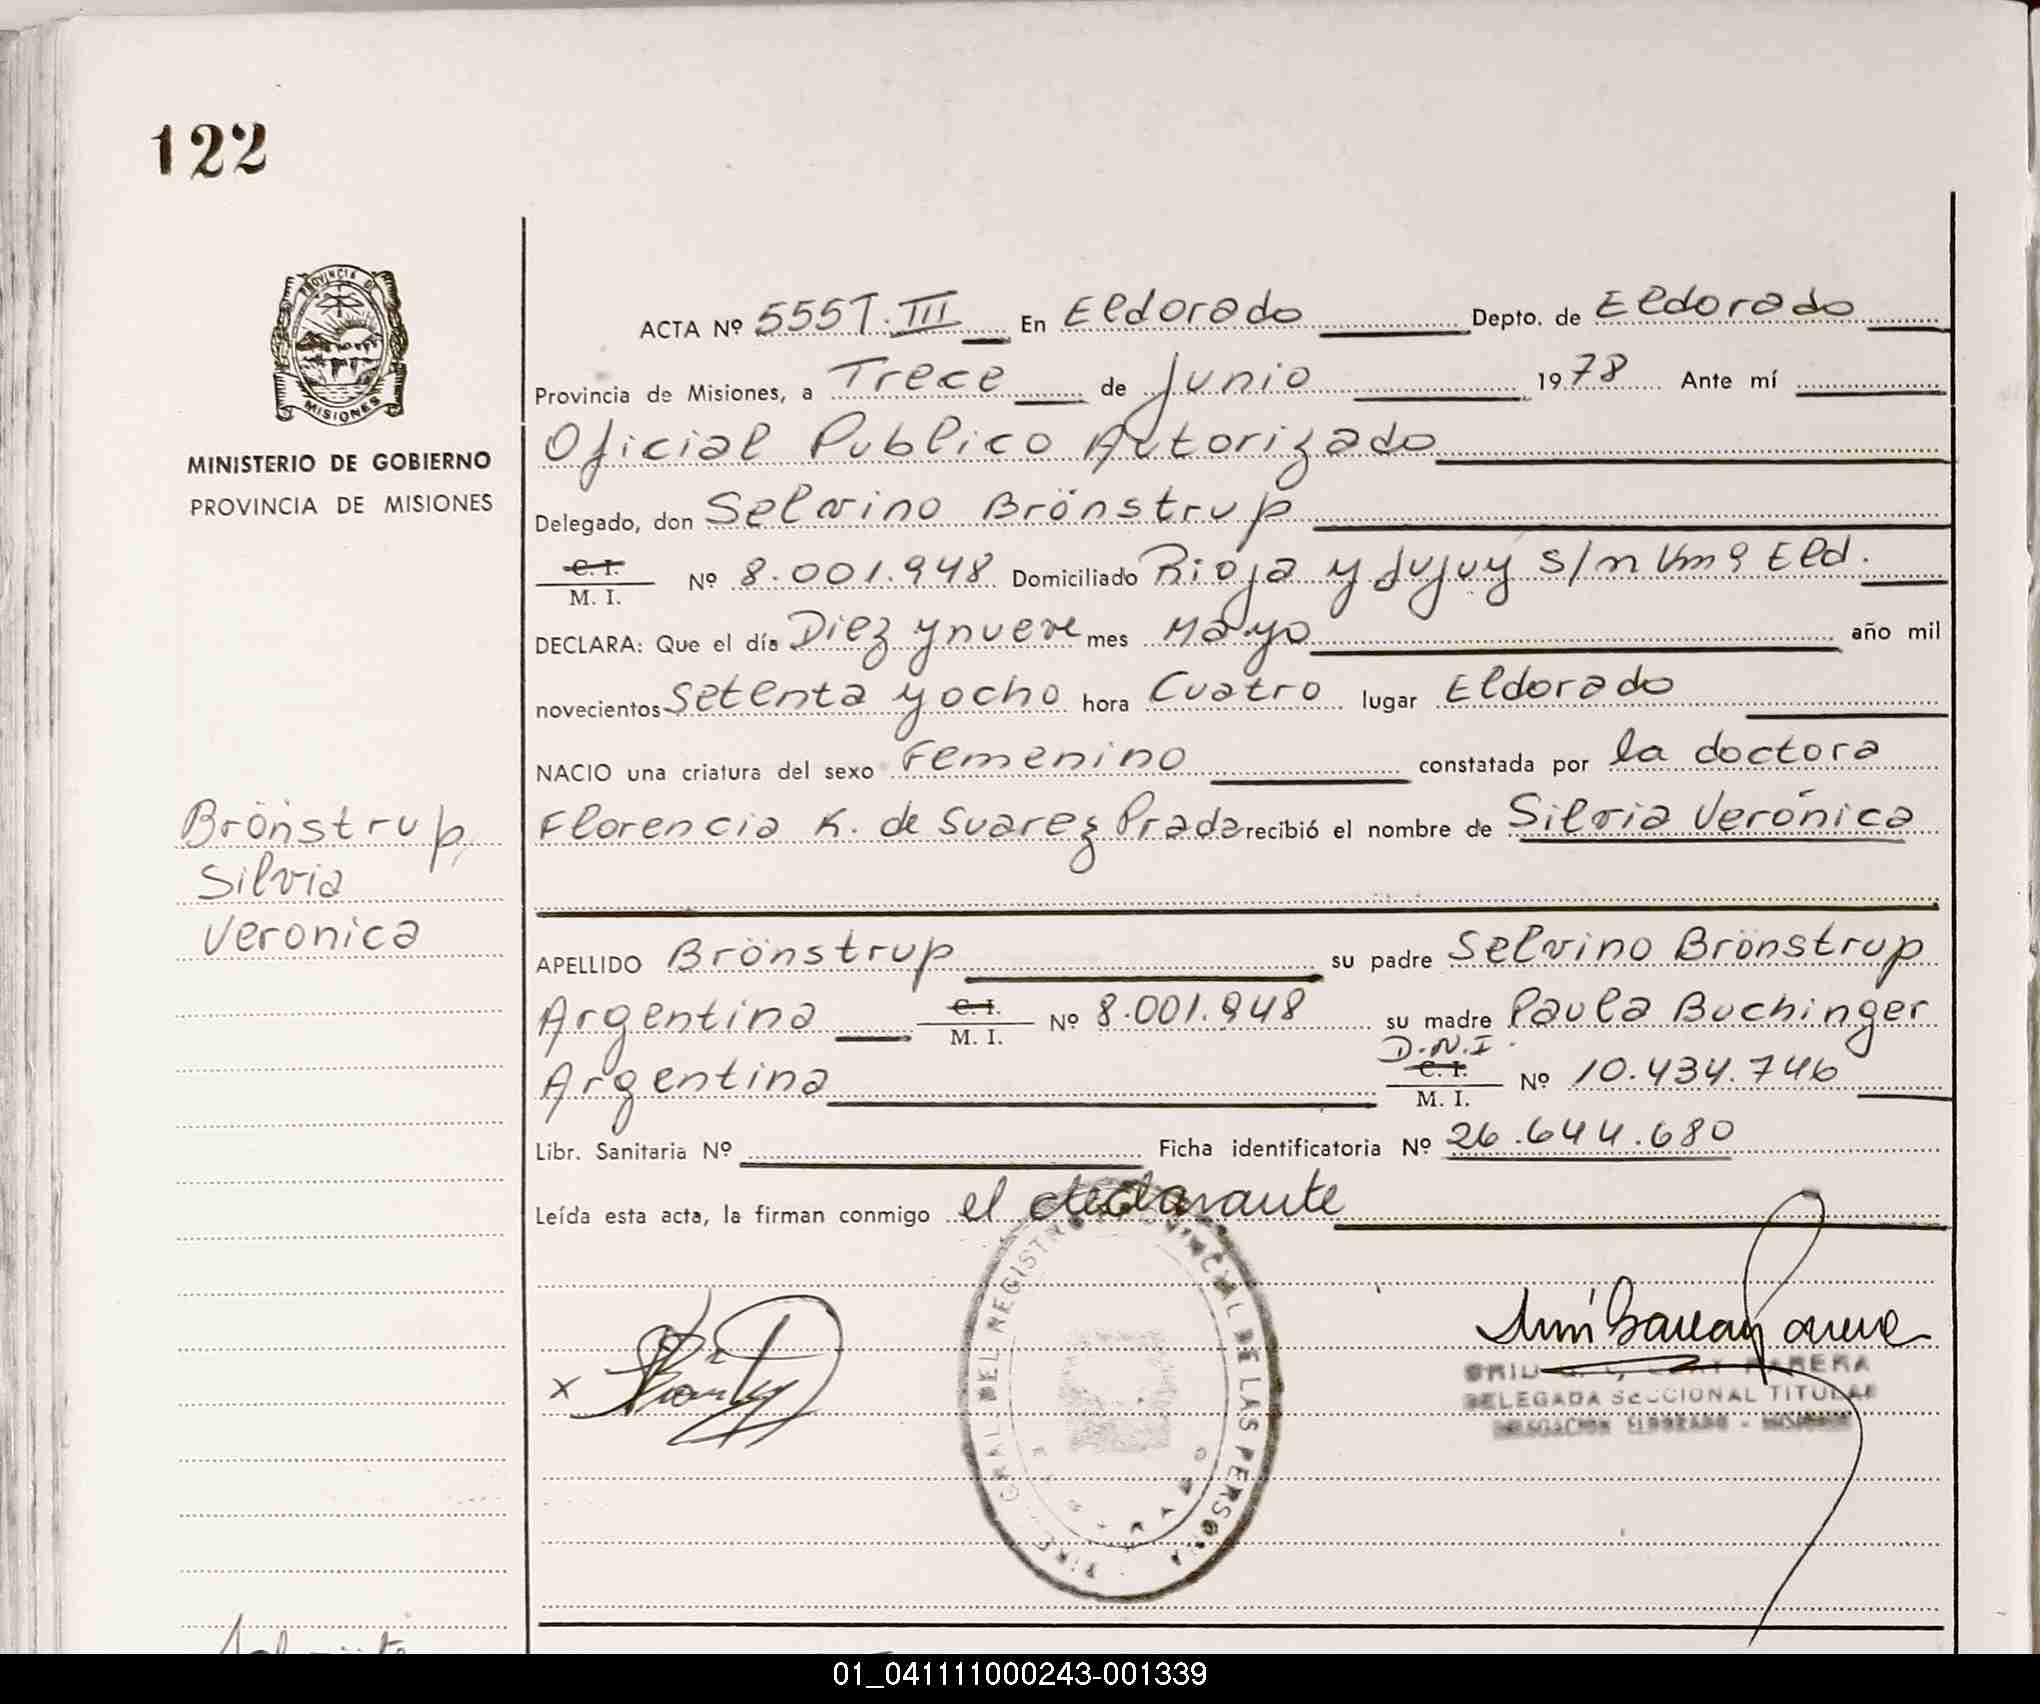 122
PROVINCIA D
MISIONES
MINISTERIO DE GOBIERNO
PROVINCIA DE MISIONES
ACTA Nº 555T.III En Eldorado Depto. de Eldorado
Provincia de Misiones, a Trece de Junio 1978 Ante mí
Oficial Publico Autorizado
Delegado, don Selvino Brönstrup
C. I.
M. I. Nº 8.001.948 Domiciliado Rioja y Jujuy s/n Km 9 Eld.
DECLARA: Que el día Diez y nueve mes Mayo año mil
novecientos Setenta y ocho hora Cuatro lugar Eldorado
NACIO una criatura del sexo Femenino constatada por la doctora
Florencia K. de Suarez Prada recibió el nombre de Silvia Verónica
Brönstrup,
Silvia
Veronica
APELLIDO Brönstrup su padre Selvino Brönstrup
Argentina C. I. M. I. Nº 8.001.948 su madre Paula Buchinger
Argentina D.N.I. C. I. M. I. Nº 10.434.746
Libr. Sanitaria Nº Ficha identificatoria Nº 26.644.680
Leída esta acta, la firman conmigo el declarante
x
DEL REGISTRO PROVINCIAL DE LAS PERSONAS
DELEGADA SECCIONAL TITULAR
DELEGACION ELDORADO - MISIONES
01_041111000243-001339